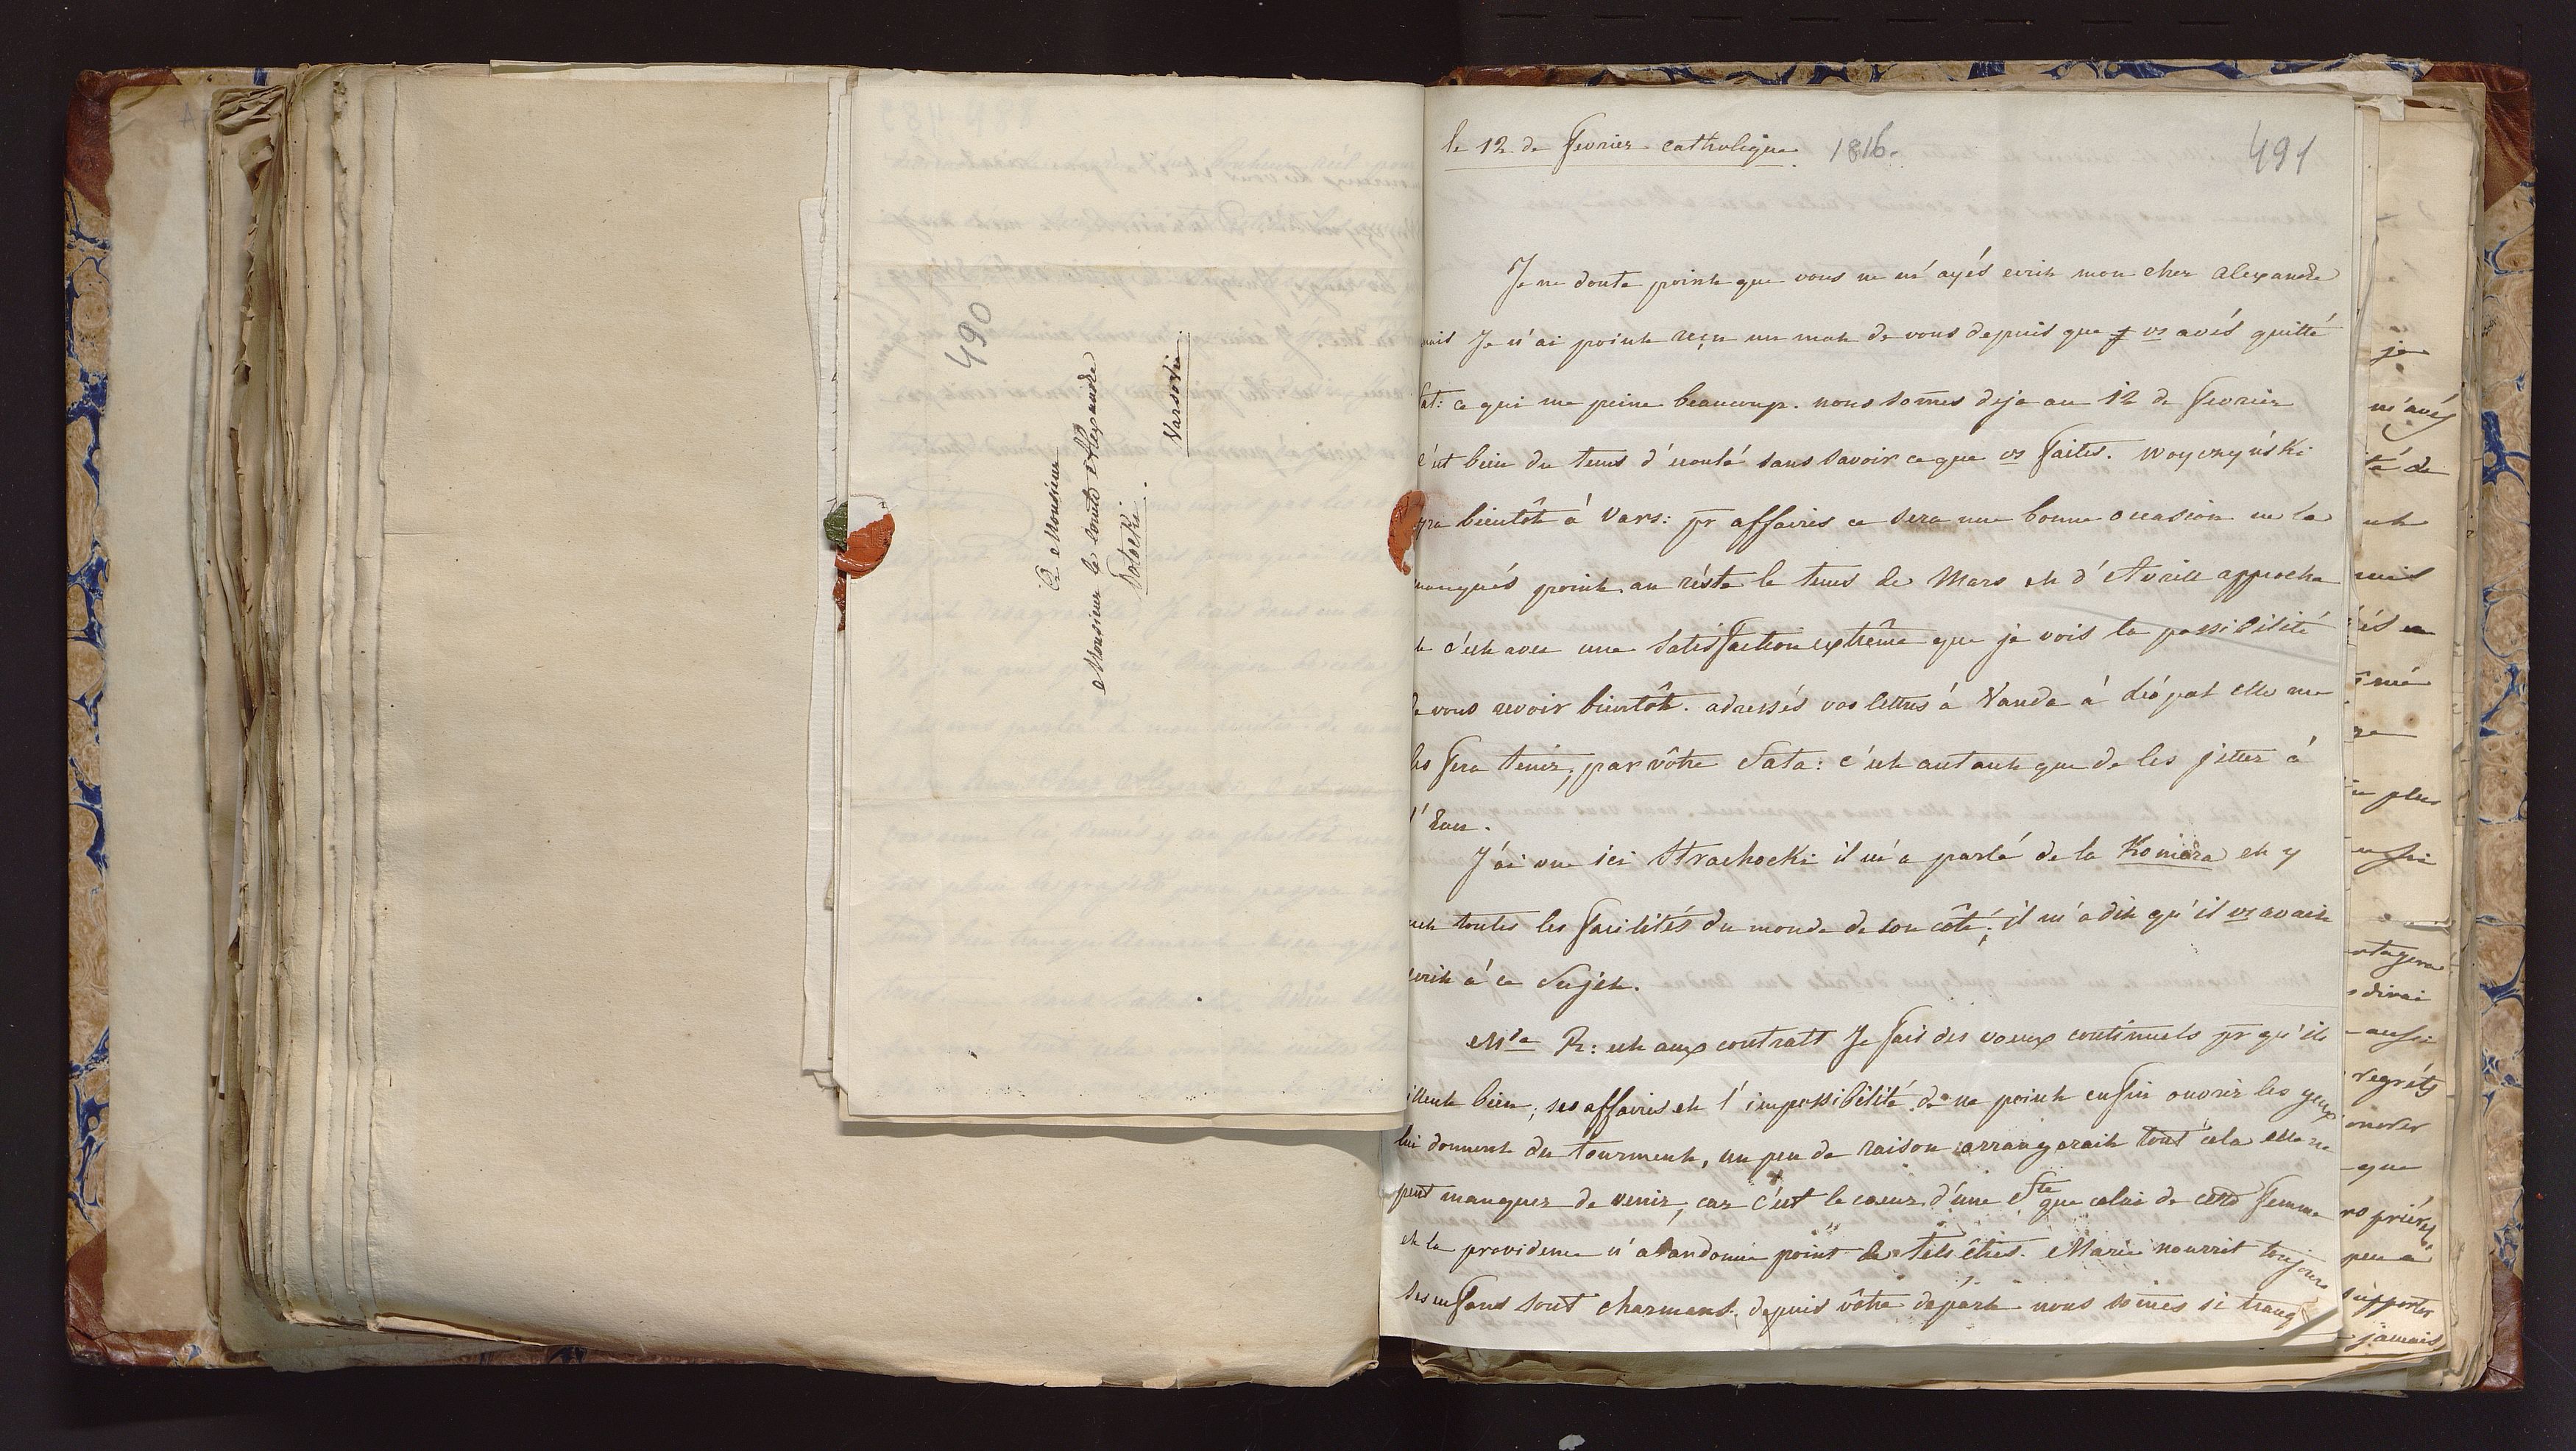 490
A Monsieur
Monsieur le Comte Alexandre
Potocki.
Varsovie
le 12 de Fevrier catholique 1816.
491
Je ne doute point que vous ne m'ayés ecrit mon cher Alexandre
mais Je n'ai point reçu un mot de vous depuis que vs avés quitté
Sat: ce qui me peine beaucoup. nous somes deja au 12 de Fevrier
c'est bien du tems d'ecoulé sans savoir ce que vs faites. Woyczyński
ira bientôt à Vars: pr affaires ce sera une bonne occasion ne la
manqués point. au réste le tems de Mars et d'Avrill approche
et c'est avec une satisfaction extrême que je vois la possibilité
de vous revoir bientôt. adressés vos lettres à Vanda à Léopol elle me
les fera tenir, par vôtre Sata: c'est autant que de les jetter à
l'Eau.
J'ai vu ici Strachocki il m'a parlé de la Komora et y
met toutes les facilités du monde de son côté; il m'a dit qu'il vs avait
ecrit à ce sujet.
Mde R: est aux contrats Je fais des voeux continuels pr qu'ils
aillent bien, ses affaires et l'impossibilité de ne point enfin ouvrir les yeux
lui donnent du tourment, un peu de raison arrangerait tout cela elle ne
peut manquer de venir, car c'est le coeur d'une Ste que celui de cette femme
et la providence n'abandonne point de tels êtres. Marie nourrit toujours
ses enfans sont charmans, depuis vôtre départ nous somes si tranq
je
m'avés
té de
plus
regréts
que
prières
peu à
supporter
jamais